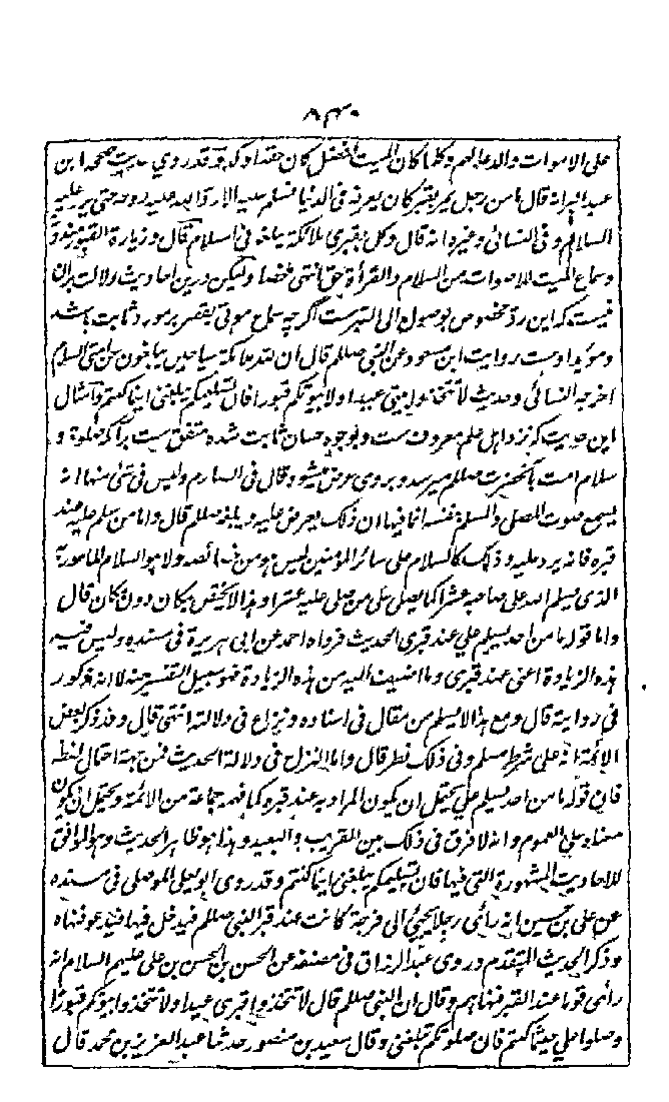 على الاموات والدعا لهم وكلما كان الميت افضل كان حقه اوكد وقد روي حديث صححه ابن
عبد البر انه قال ما من رجل يمر بقبر كان يعرفه فى الدنيا فسلم عليه الا رد الله عليه روحه حتى يرد عليه
السلام وفى النسائى وغيره انه قال وكل بقبرى ملائكة يبلغه فى اسلام قال وزيارة القبور
وسماع الميت للاصوات من السلام والقرأة حق انتهى ولیکن درین احادیث دلالت بران
نیست که این رد مخصوص بوصول الی القبر ست اگرچه سماع موتى بقصر برمورد ثابت باشد
ومؤید اوست روایت ابن مسعود عن النبى صلعم قال ان لله ملائكة سياحين يبلغون عن امتى السلام
اخرجه النسائى وحديث لا تتخذوا بيتى عيدا ولا بيوتكم قبورا فان تسليمكم يبلغنى اينما كنتم وامثال
این حدیث که نزد اهل علم معروف ست وبوجوه حسان ثابت شده متفق ست برآنکه صلوة و
سلام امت بآنحضرت صلعم میرسد وبروی عرض میشود وقال فى الصارم وليس فى شئ منها انه
يسمع صوت المصلى والمسلم نفسه انما فيها ان ذلك يعرض عليه ويبلغه صلعم قال واما من سلم عليه عند
قبره فانه يرد عليه وذلك كالسلام على سائر المؤمنين ليس هو من خصائصه ولا هو السلام المامور به
الذى يسلم الله على صاحبه عشرا كما يصلى على من صلى عليه عشرا وهذا لا يختص بمكان دون مكان قال
واما قوله ما من احد يسلم على عند قبرى الحديث فرواه احمد عن ابى هريرة فى مسنده وليس فيه
هذه الزيادة اعنى عند قبرى وما اضيف اليه من هذه الزيادة فهو سبيل التفسير عنه لا انه مذكور
فى رواية قال ومع هذا لا يسلم من مقال فى اسناده ونزاع فى دلالته انتهى قال وقد ذكر بعض
الائمة انه على شرط مسلم وفى ذلك نظر قال واما النزاع فى دلالة الحديث فمن جهة احتمال لفظه
فان قوله ما من احد يسلم على يحتمل ان يكون المراد به عند قبره كما فهمه جماعة من الائمة ويحتمل ان يكون
معناه على العموم وانه لا فرق فى ذلك بين القريب والبعيد وهذا هو ظاهر الحديث وهو الموافق
للاحاديث المشهورة التى فيها فان تسليمكم يبلغنى اينما كنتم وقد روى ابو يعلى الموصلى فى مسنده
عن على بن حسين انه رأى رجلا يجئ الى فرجة كانت عند قبر النبى صلعم فيدخل فيها فيدعو فنهاه
وذكر الحديث المتقدم وروى عبد الرزاق فى مصنفه عن الحسن بن الحسن بن على عليهم السلام انه
رأى قوما عند القبر فنهاهم وقال ان النبى صلعم قال لا تتخذوا قبرى عيدا ولا تتخذوا بيوتكم قبورا
وصلوا على حيثما كنتم فان صلوتكم تبلغنى وقال سعيد بن منصور حدثنا عبد العزيز بن محمد قال